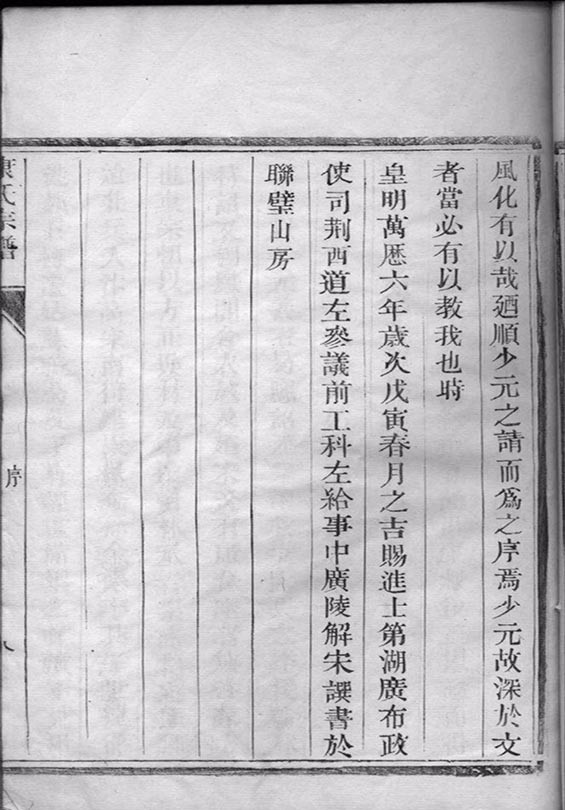 風化有以哉廼順少元之請而爲之序焉少元故深於文
者當必有以教我也時
皇明萬歷六年歲次戊寅春月之吉賜進士第湖廣布政
使司荆西道左叅議前工科左給事中廣陵解宋譔書於
聯璧山房
康氏宗譜
序